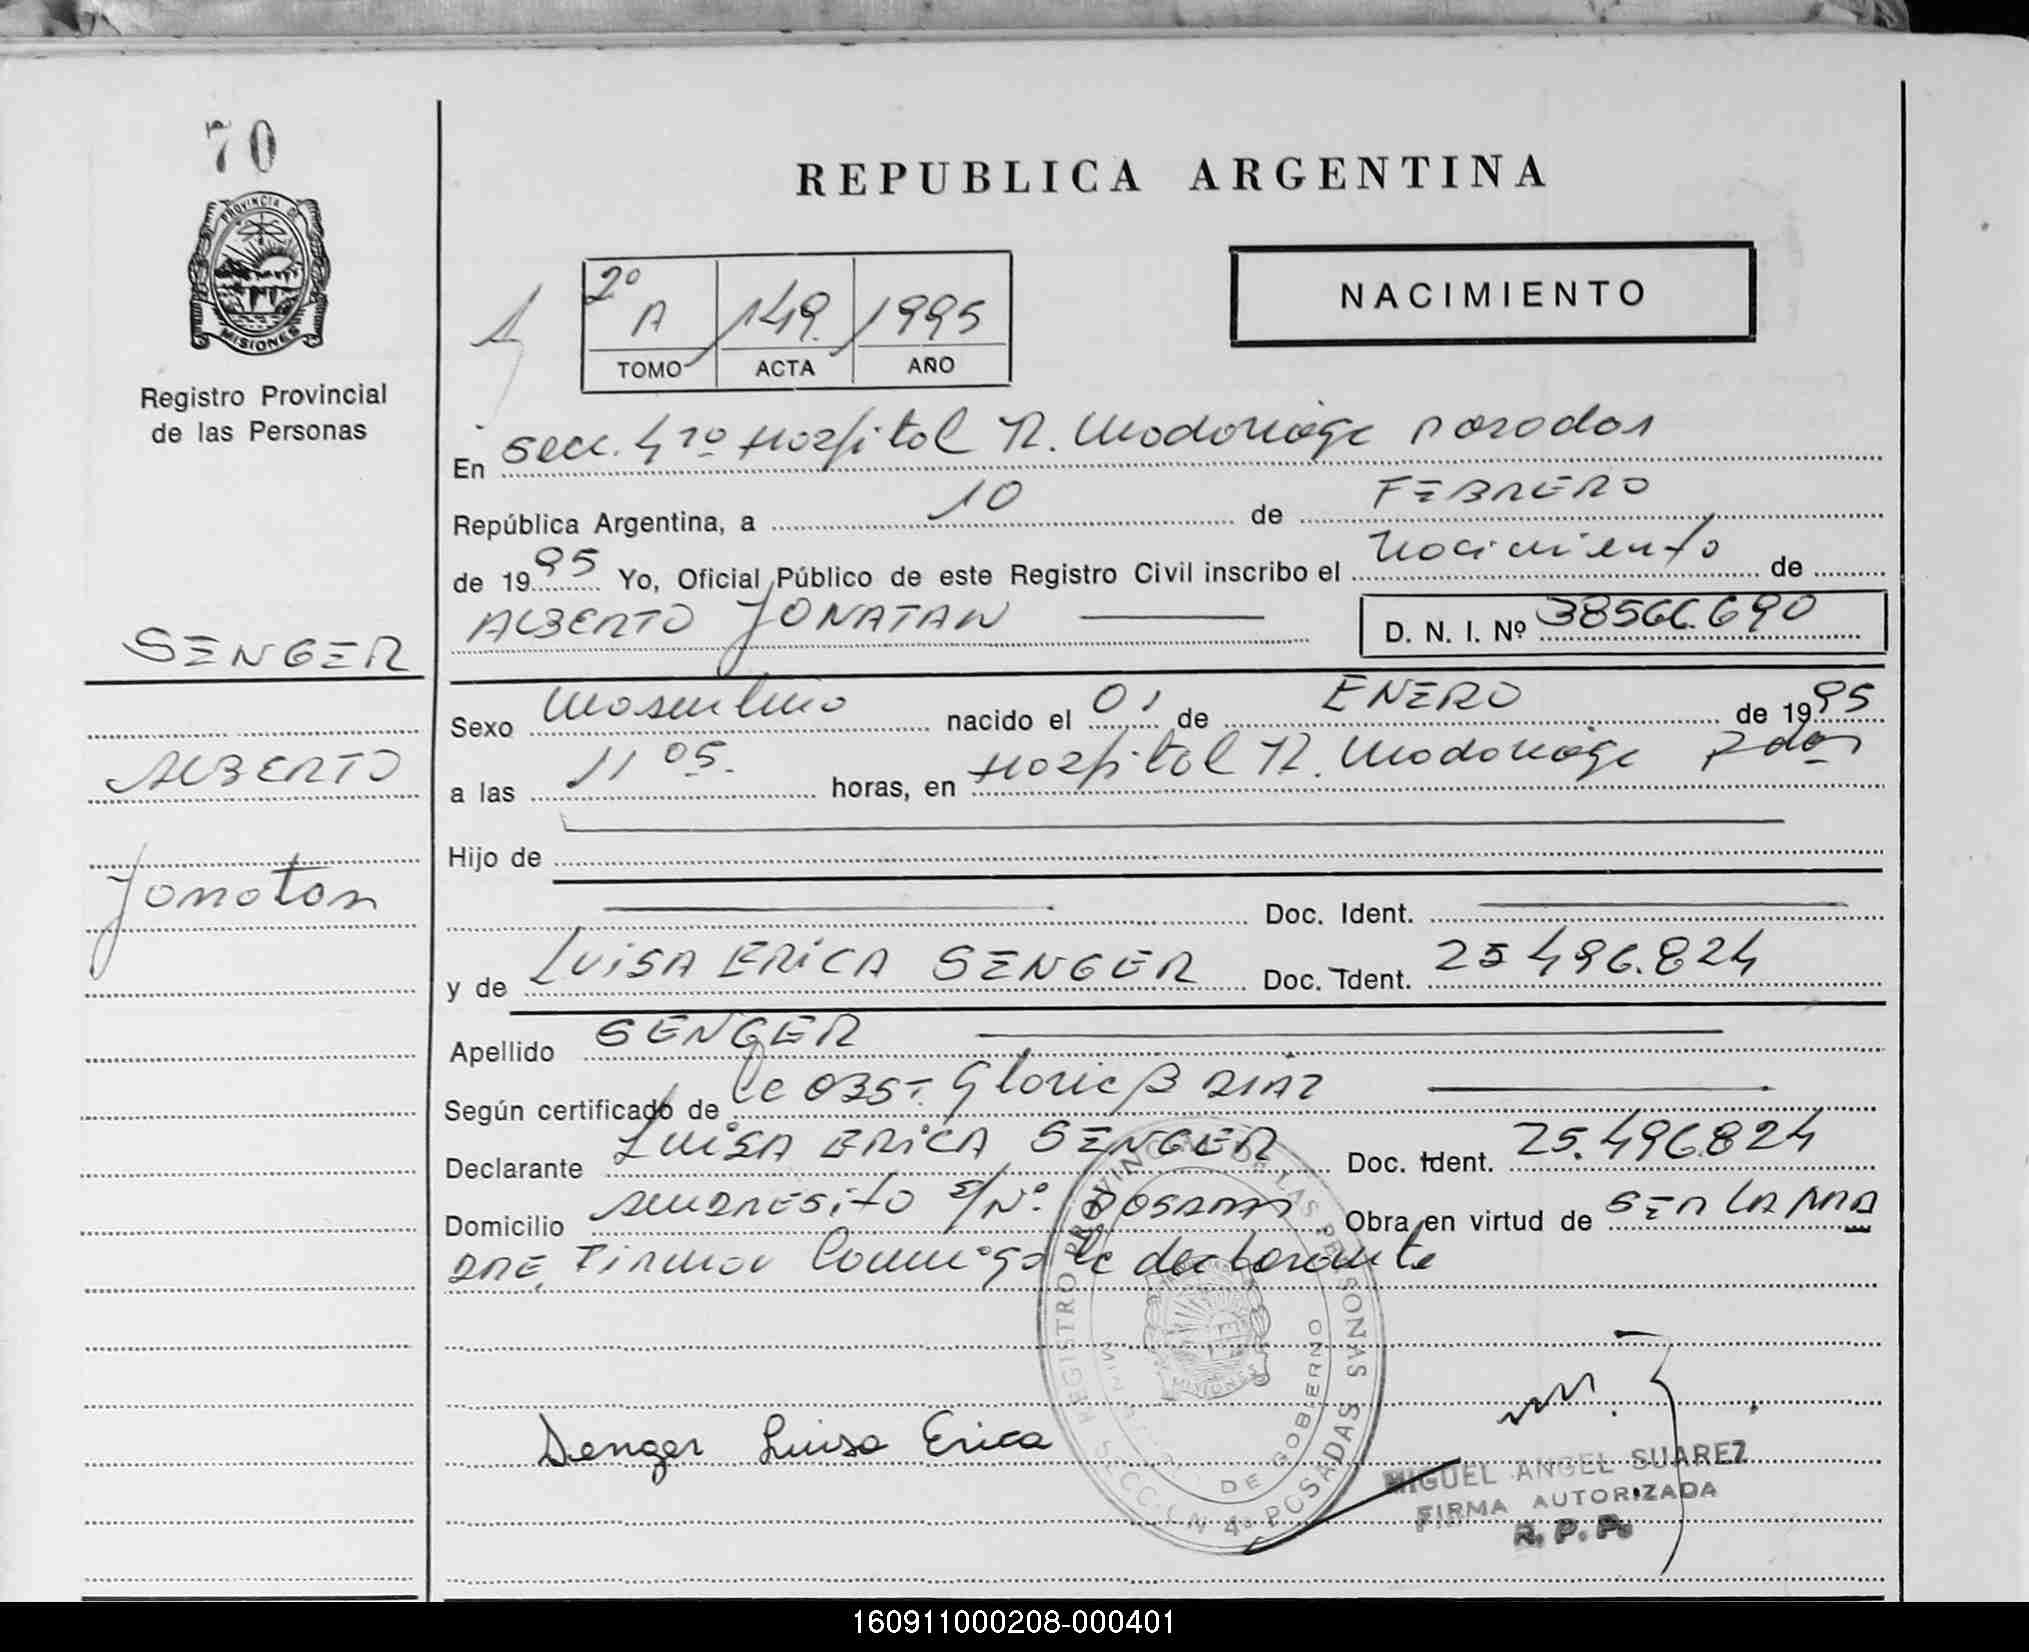 70
PROVINCIA DE
MISIONES
Registro Provincial
de las Personas
SENGER
ALBERTO
Jonatan
REPUBLICA ARGENTINA
2º A 149. 1995
TOMO ACTA AÑO
NACIMIENTO
En Secc. 4ta Hospital R. Madariaga Posadas
República Argentina, a 10 de FEBRERO
de 1995 Yo, Oficial Público de este Registro Civil inscribo el Nacimiento de
ALBERTO JONATAN D. N. I. Nº 38566.690
Sexo Masculino nacido el 01 de ENERO de 1995
a las 11 05. horas, en Hospital R. Madariaga Pdas
Hijo de
Doc. Ident.
y de LUISA ERICA SENGER Doc. Ident. 25 496.824
Apellido SENGER
Según certificado de la OBST. Gloria B DIAZ
Declarante LUISA ERICA SENGER Doc. Ident. 25.496824
Domicilio ANDRESITO S/Nº. POSADAS Obra en virtud de SER LA MA
DRE, Firman Conmigo la declarante
REGISTRO PROVINCIAL DE LAS PERSONAS
SECCION 4a POSADAS
DE GOBIERNO
MISIONES
Senger Luisa Erica
MIGUEL ANGEL SUAREZ
FIRMA AUTORIZADA
R. P. P.
160911000208-000401